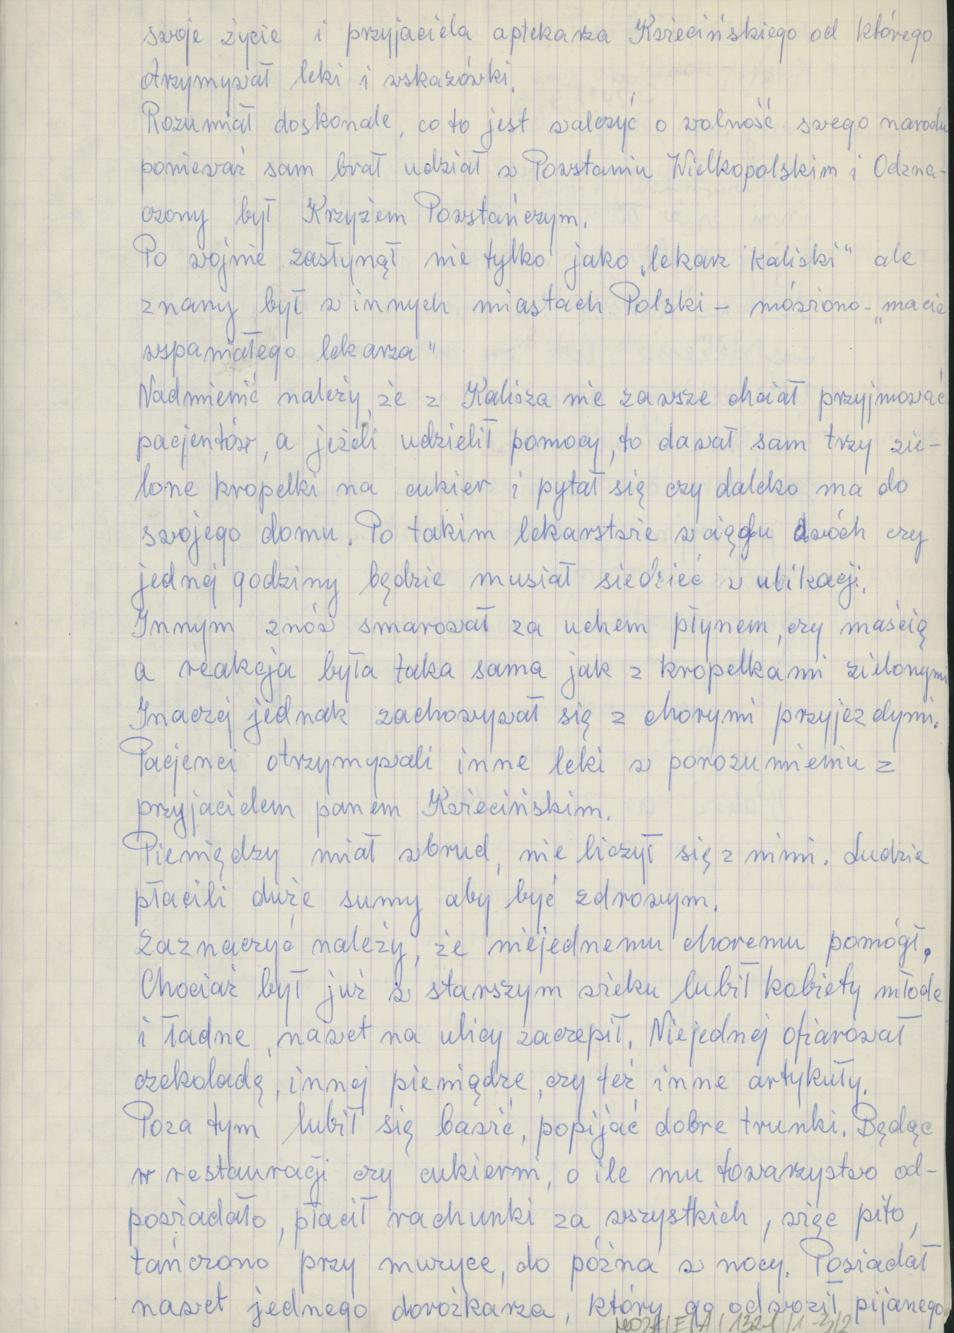 swoje życie i przyjaciela aptekarza Kwiecińskiego od którego
otrzymywał leki i wskazówki.
Rozumiał doskonale, co to jest walczyć o wolność swego narodu
ponieważ sam brał udział w Powstaniu Wielkopolskim i Odzna-
czony był Krzyżem Powstańczym.
Po wojnie zasłynął nie tylko jako „lekarz kaliski" ale
znany był w innych miastach Polski – mówiono – „macie
wspaniałego lekarza"
Nadmienić należy, że z Kalisza nie zawsze chciał przyjmować
pacjentów, a jeżeli udzielił pomocy, to dawał sam trzy zie-
lone kropelki na cukier i pytał się czy daleko ma do
swojego domu. Po takim lekarstwie w ciągu dwóch czy
jednej godziny będzie musiał siedzieć w ubikacji.
Innym znów smarował za uchem płynem, czy maścią
a reakcja była taka sama jak z kropelkami zielonymi
Inaczej jednak zachowywał się z chorymi przyjezdymi.
Pacjenci otrzymywali inne leki w porozumieniu z
przyjacielem panem Kwiecińskim.
Pieniędzy miał wbrud, nie liczył się z nimi. Ludzie
płacili duże sumy aby być zdrowym.
Zaznaczyć należy, że niejednemu choremu pomógł.
Chociaż był już w starszym wieku lubił kobiety młode
i ładne, nawet na ulicy zaczepił. Niejednej ofiarował
czekoladę, innej pieniądze, czy też inne artykuły.
Poza tym lubił się bawić, popijać dobre trunki. Będąc
w restauracji czy cukierni, o ile mu towarzystwo od-
powiadało, płacił rachunki za wszystkich, więc piło,
tańczono przy muzyce, do późna w nocy. Posiadał
nawet jednego dorożkarza, który go odwoził pijanego